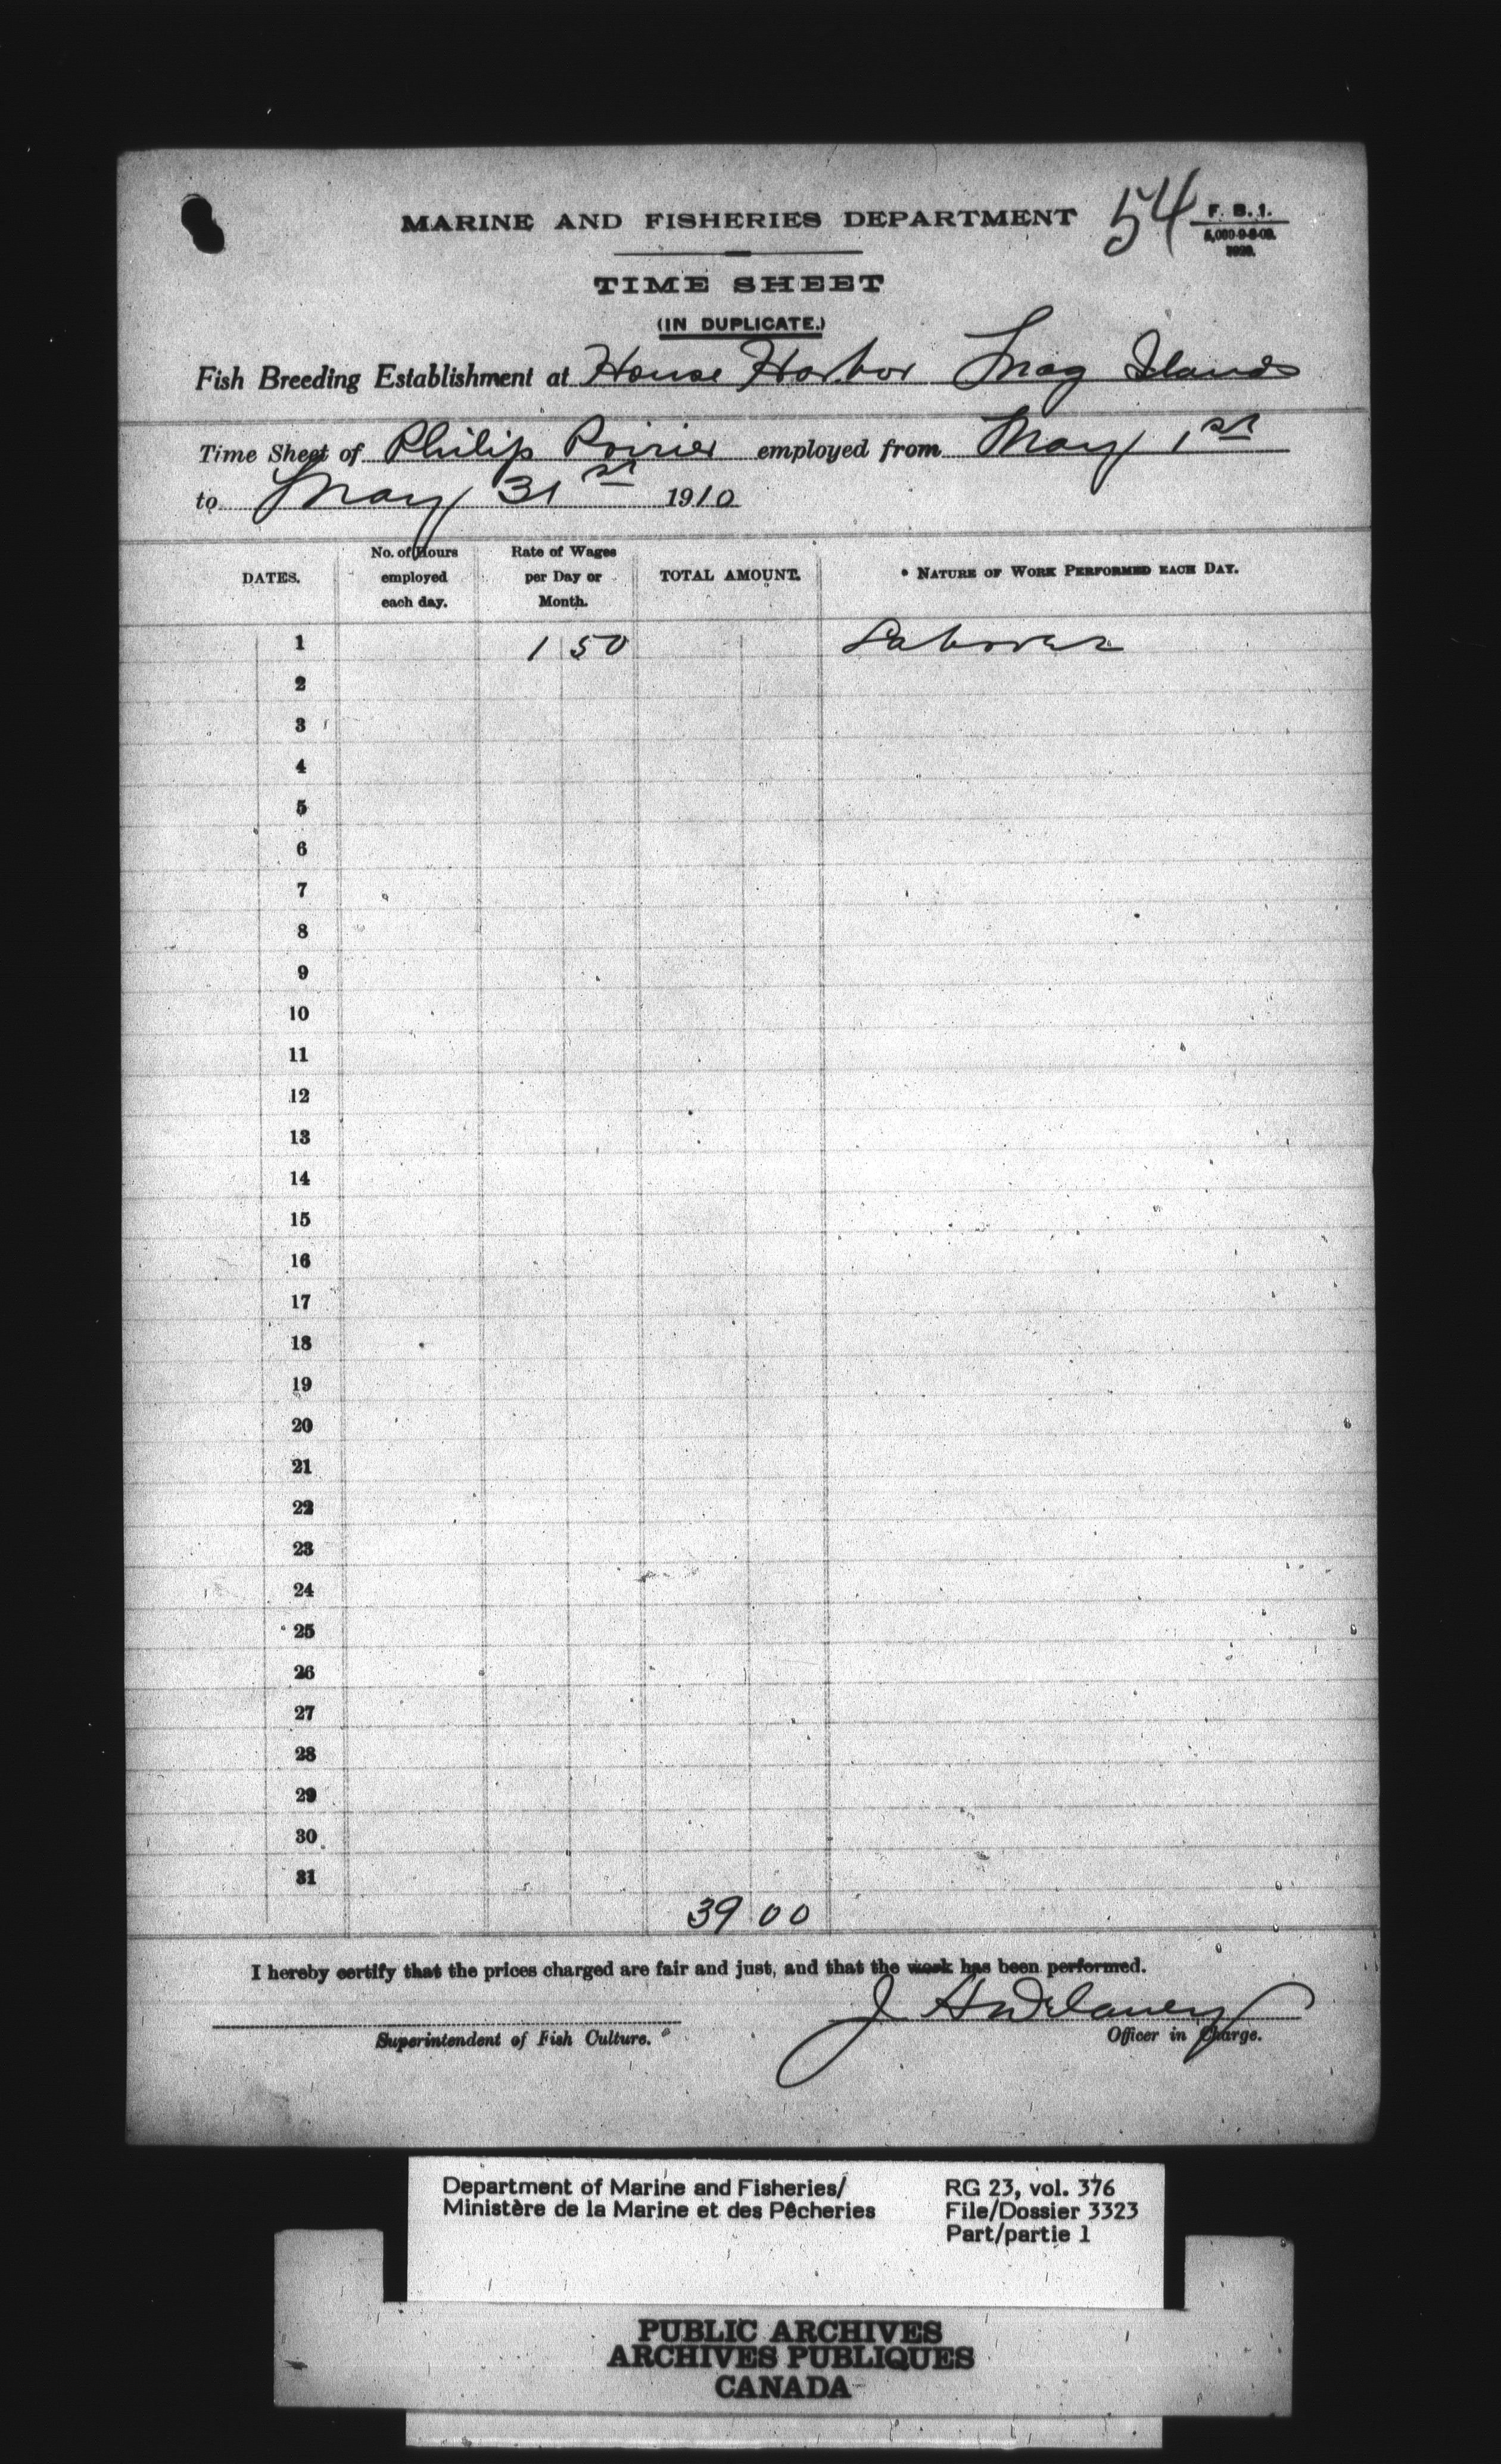 MARINE AND FISHERIES DEPARTMENT
54
F. B. 1.
TIME SHEET
(IN DUPLICATE.)
Fish Breeding Establishment at House Harbor Mag Islands
Time Sheet of Philip Poirier employed from May 1st
to May 31st 1910
DATES. No. of Hours employed each day. Rate of Wages per Day or Month. TOTAL AMOUNT. * NATURE OF WORK PERFORMED EACH DAY.
1 1 50 Laborer
2
3
4
5
6
7
8
9
10
11
12
13
14
15
16
17
18
19
20
21
22
23
24
25
26
27
28
29
30
31
39 00
I hereby certify that the prices charged are fair and just, and that the work has been performed.
J A W Delaney
Superintendent of Fish Culture. Officer in Charge.
Department of Marine and Fisheries/ RG 23, vol. 376
Ministère de la Marine et des Pêcheries File/Dossier 3323
Part/partie 1
PUBLIC ARCHIVES
ARCHIVES PUBLIQUES
CANADA